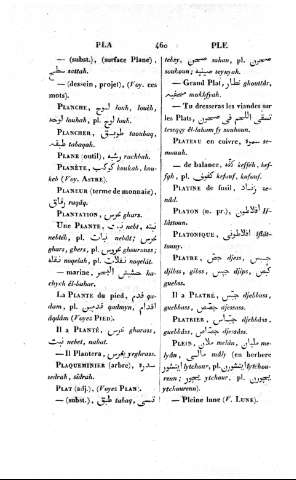 PLA 460 PLE
— (subst.), (surface Plane),
سطح sottah.
— (dessein, projet), (Voy. ces
mots).
PLANCHE, لوح louh, louèh,
لوحه louhah, pl. لوح louh.
PLANCHER, طوبق taoubaq,
طبقه tabaqah.
PLANE (outil), رشبه rachbah.
PLANÈTE, كوكب koukab, kou-
keb (Voy. ASTRE).
PLANEUR (terme de monnaie),
رقاق raqâq.
PLANTATION, غرس ghars.
Une PLANTE, نبت nebt, نبته
nebteh, pl. نبات nebât; غرس
ghars, ghers, pl. غروس ghourouss;
نقله noqelah, pl. نقلات noqelât.
— marine, حشيش البحر ha-
chych êl-bahar.
La PLANTE du pied, قدم qa-
dam, pl. قدمين qadmyn, اقدام
âqdâm (Voyez PIED).
Il a PLANTÉ, غرس gharass,
نبت nebet, nabat.
— Il Plantera, يغرس yeghrass.
PLAQUEMINIER (arbre), سدره
sedrah, sidrah.
PLAT (adj.), (Voyez PLAN).
— (subst.), طبق tabaq, تبسى
tebsy, صحن sahan, pl. صحون
souhoun; صينيه seynyeh.
— Grand Plat, غطار ghouttâr,
مخفيه makhfyah.
— Tu dresseras les viandes sur
les Plats, تسقى اللحم فى صحون
tesqqy êl-lahem fy souhoun.
PLATEAU en cuivre, صنوه se-
nouah.
— de balance, كفه keffeh, kef-
fah, pl. كفوف kefouf, kenfouf.
PLATINE de fusil, زناد zenâd,
znâd.
PLATON (n. pr.), افلاطون îf-
lâtoun.
PLATONIQUE, افلاطونى îflât-
tounny.
PLATRE, جبس djess, جبس
djibss, gibss, pl. جبس djips, كبس
guebss.
Il a PLATRÉ, جبس djebbass,
guebbass, جصص djessass.
PLATRIER, جباس djebbâss,
guebbâss, جصاص djessâss.
PLEIN, ملان melân, مليان me-
lyân, مالى mâly (en berbere
ايتشور îytchour, pl. ايتشورن îytchou-
renn; يچور ytchour, pl. يچورن
ytchourenn).
— Pleine lune (V. LUNE).